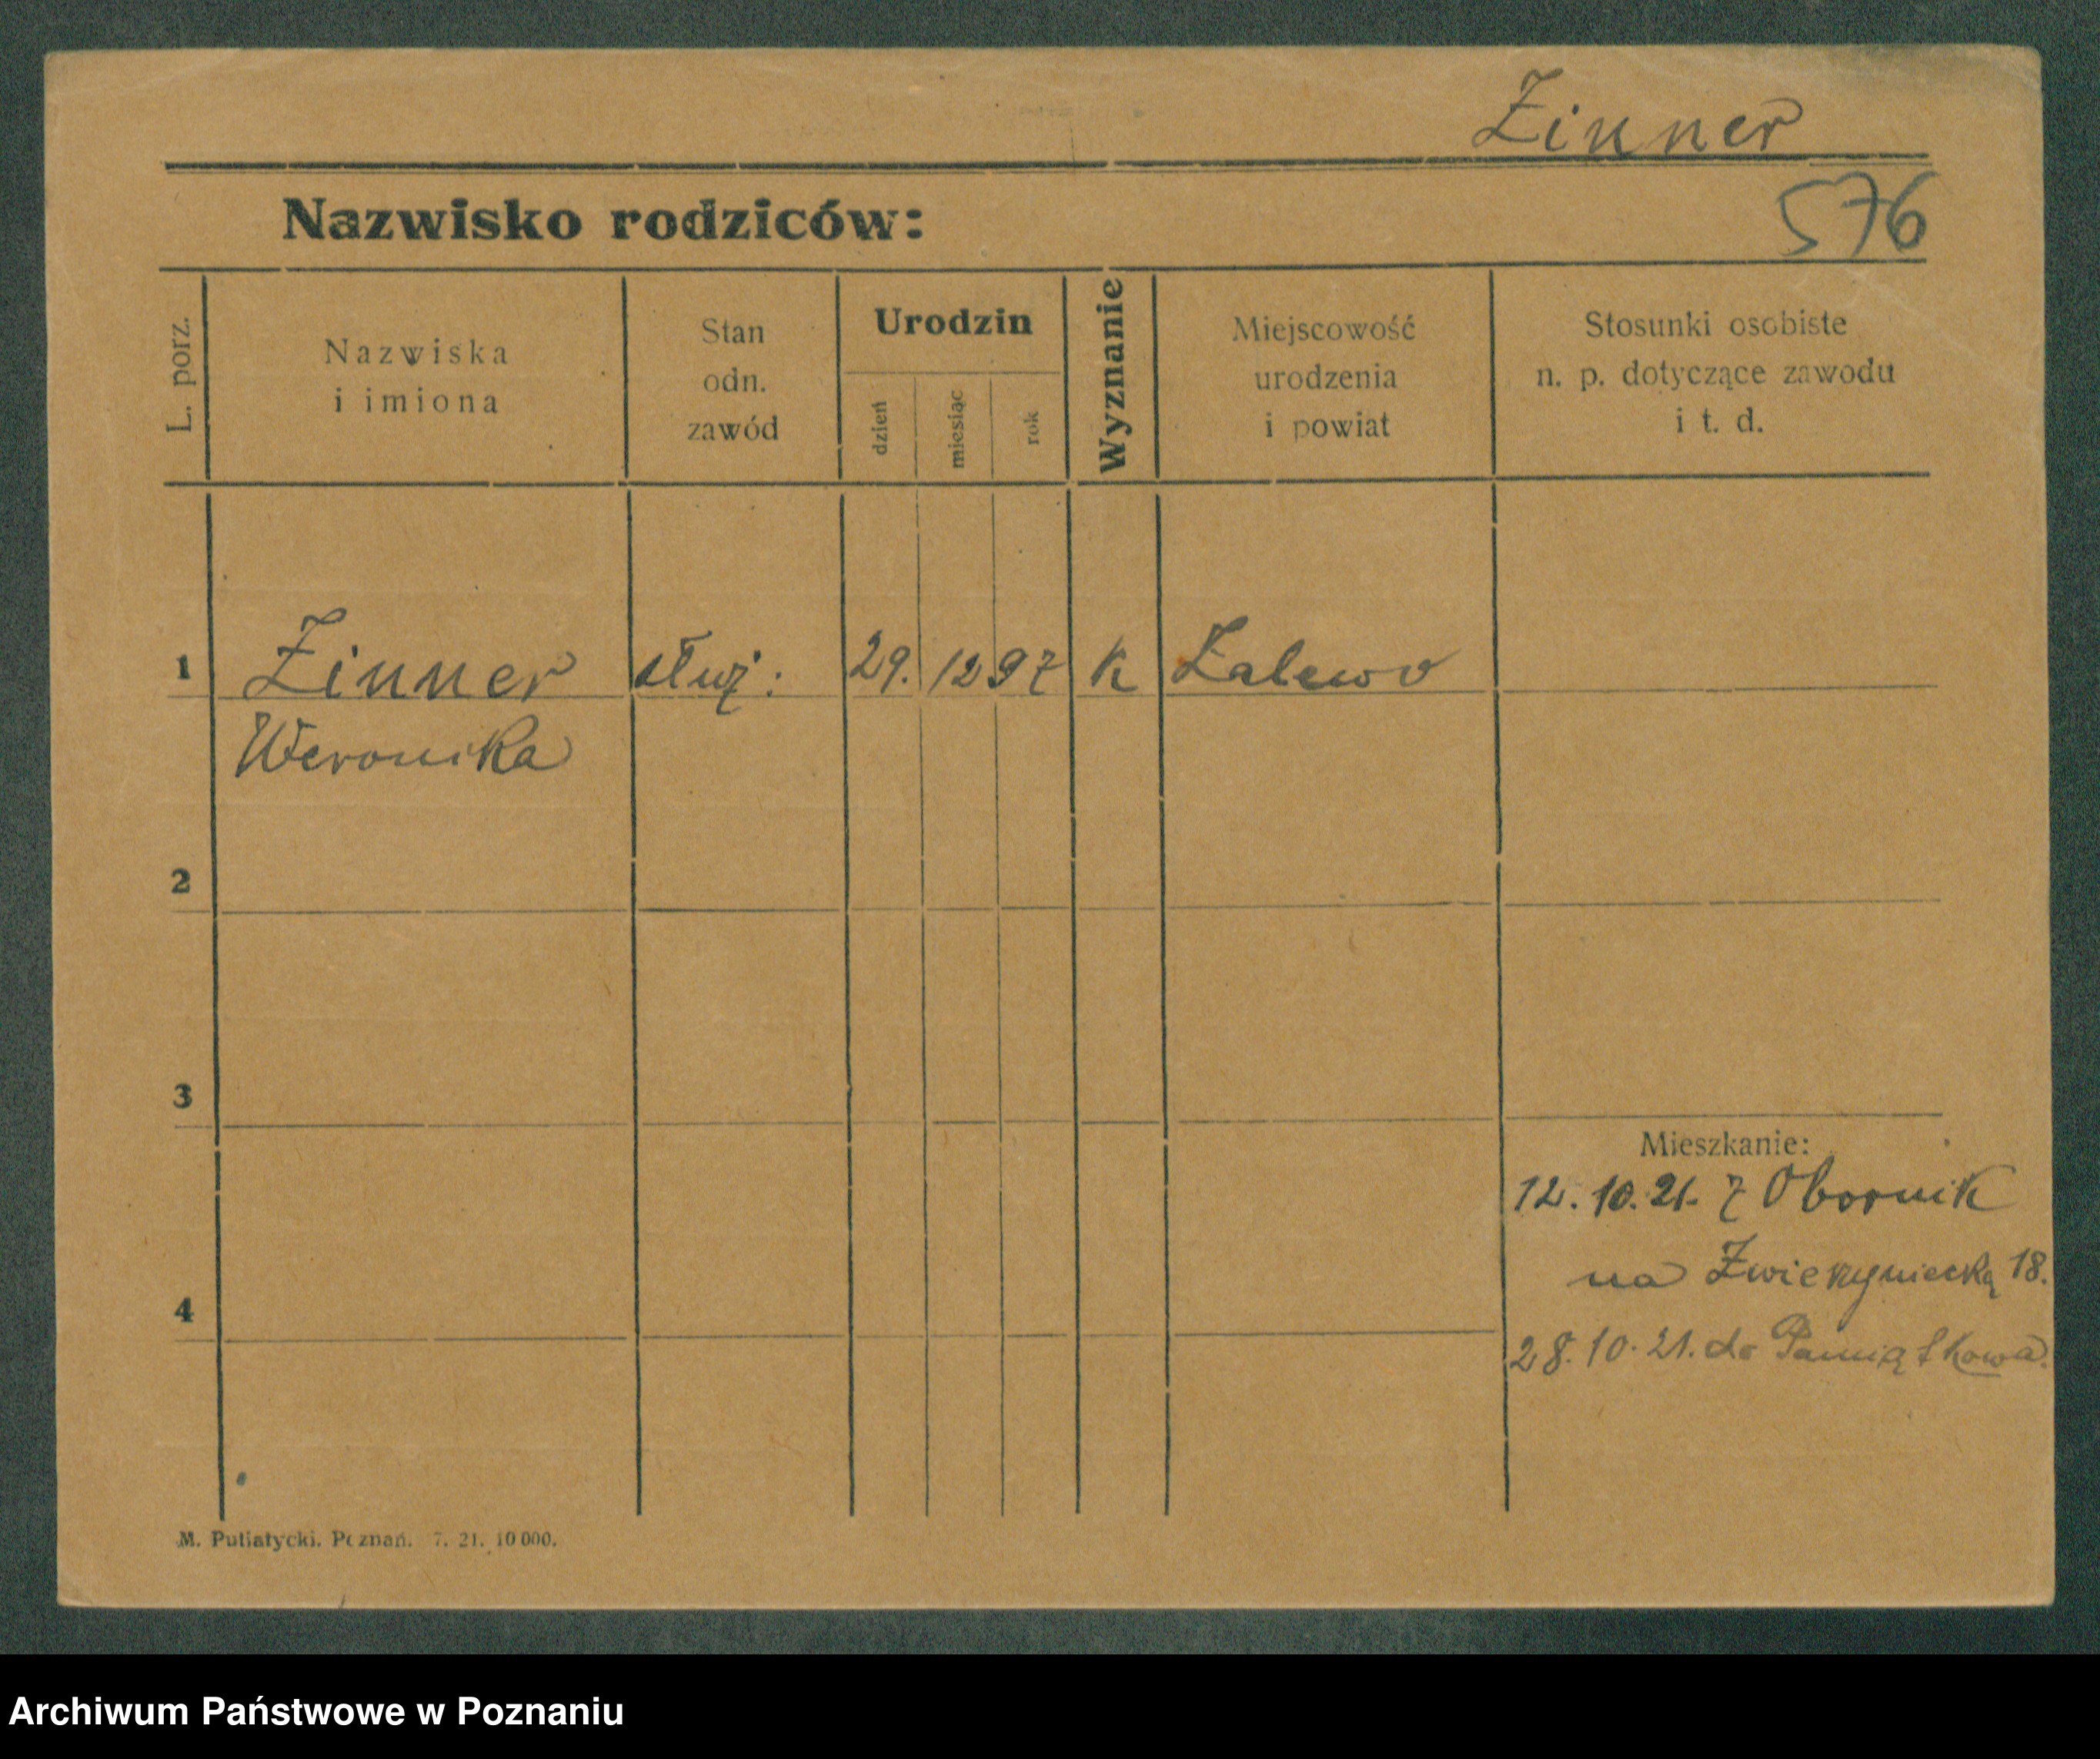 Zinner
576
Nazwisko rodziców:
L. porz.
Nazwiska
i imiona
Stan
odn.
zawód
Urodzin
dzień
miesiąc
rok
Wyznanie
Miejscowość
urodzenia
i powiat
Stosunki osobiste
n. p. dotyczące zawodu
i t. d.
1 Zinner służ: 29. 12 97 k Zalewo
Weronika
2
3
Mieszkanie:
12. 10. 21. z Obornik
na Zwierzyniecką 18.
4
28. 10. 21. do Pamiątkowa.
M. Putiatycki. Poznań. 7. 21. 10 000.
Archiwum Państwowe w Poznaniu